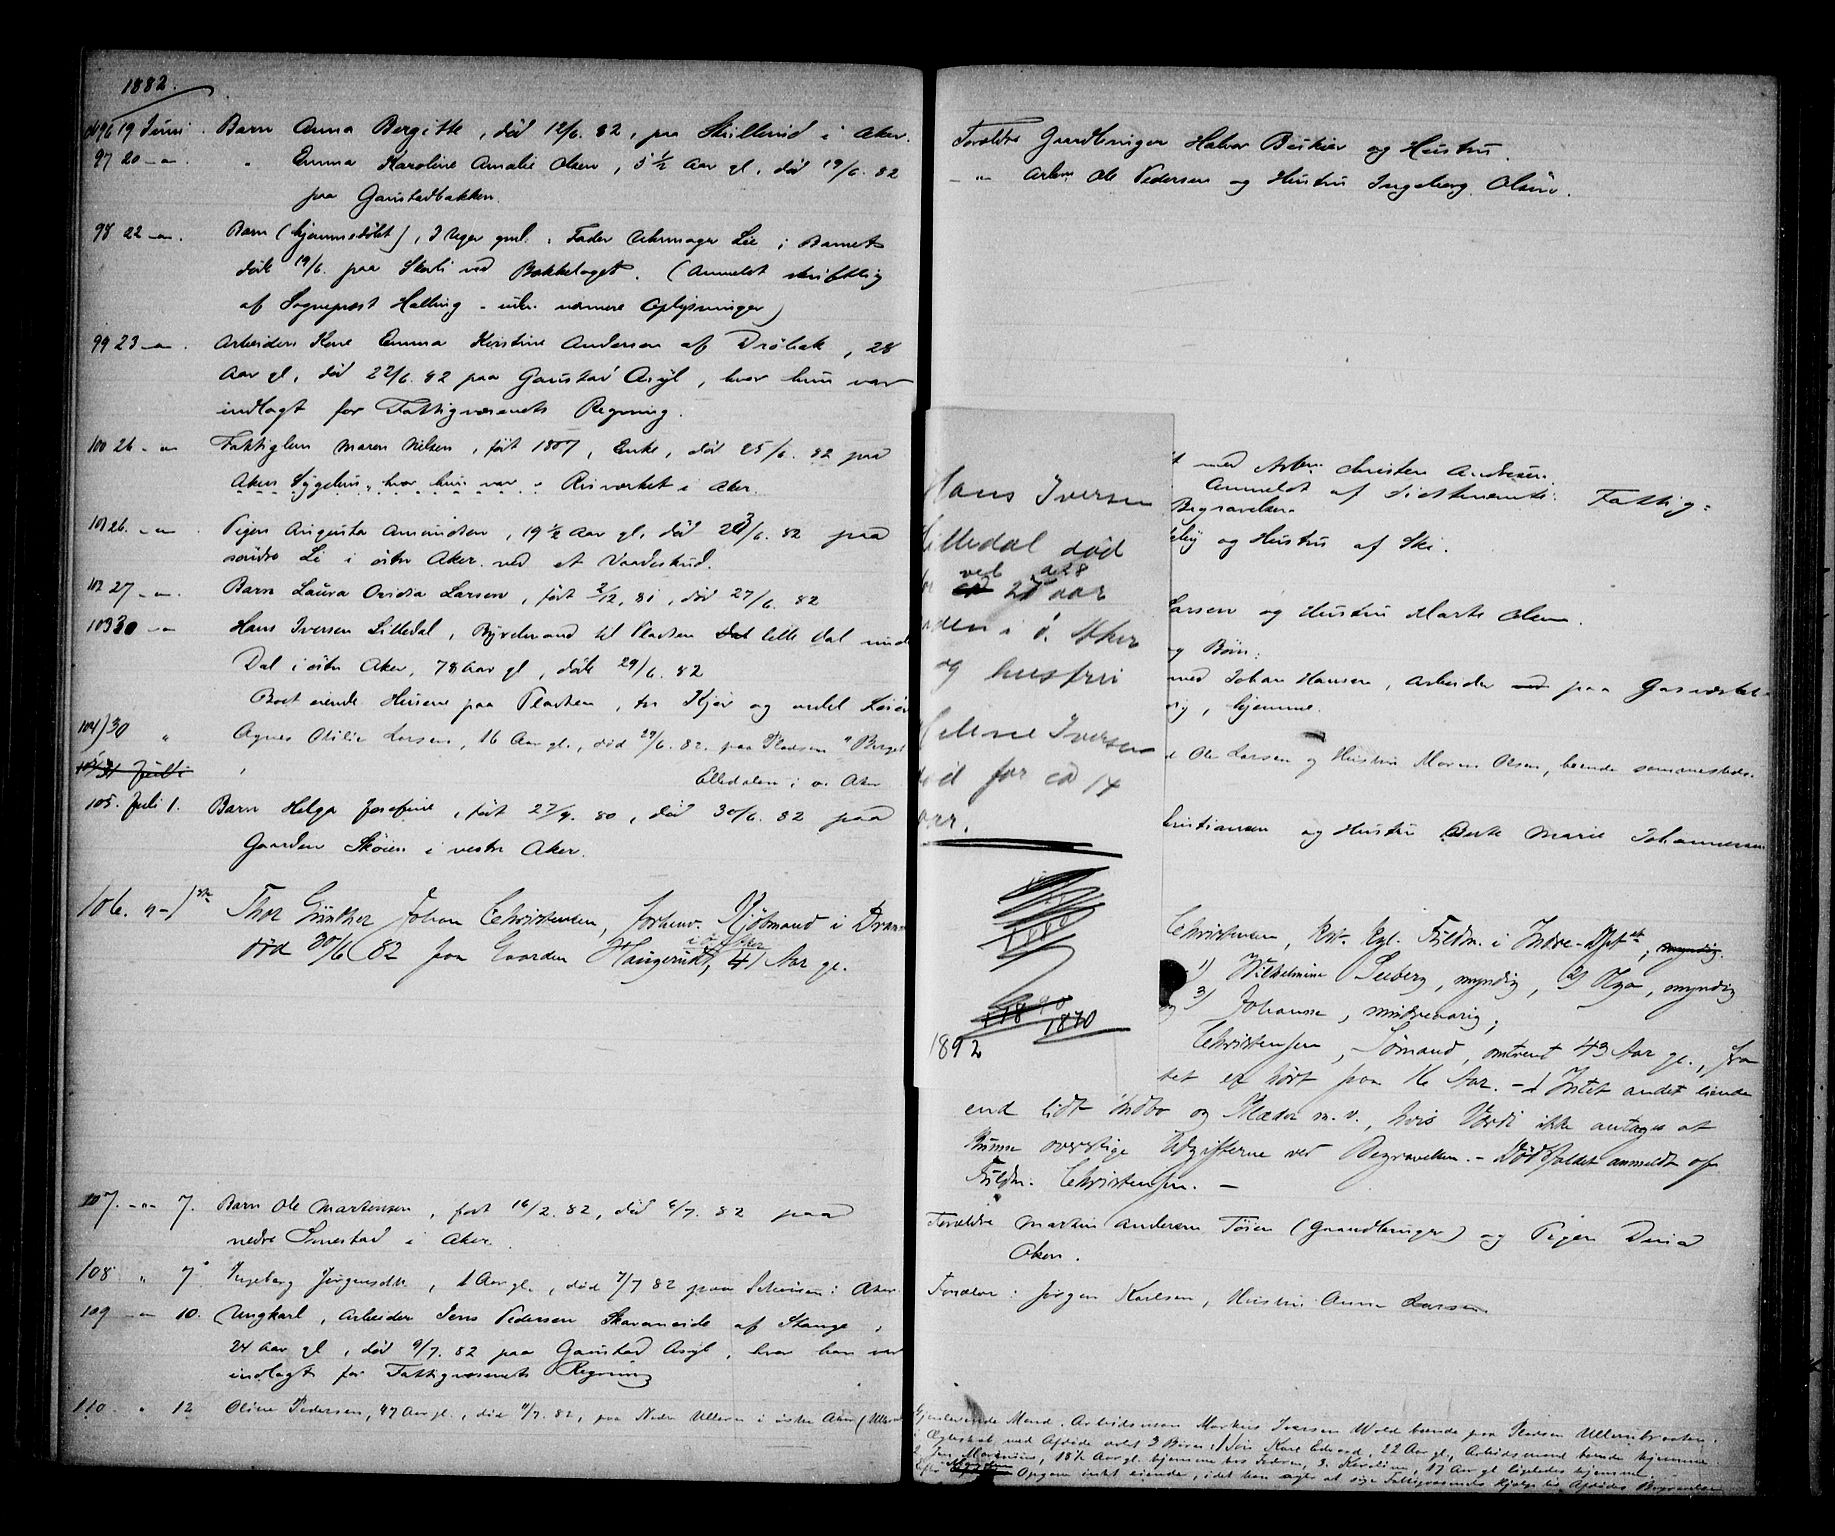 1882.
96 19 Juni. Barn Anna Bergitte, død 12/6. 82, paa i Aker.
97 20 — " — " Emma Karoline Amalie Olsen, 5 1/2 Aar gl, død 19/6. 82
paa Gaustadbakken.
98 22 — " — Barn (hjemmedøbt), 3 Uger gml. Fader Uhrmager Lie; Barnet
døde 19/6. paa ved Bækkelaget. (Anmeldt skriftlig
af Sogneprest Halling — uden nærmere Oplysninger)
99 23 — " — Arbeiders Kone Emma Kirstine Andersen af Drøbak, 28
Aar gl, død 22/6. 82 paa Gaustad Asyl, hvor hun var
indlagt for Fattigvæsenets Regning.
100 26 — " — Fattiglem Maren Nielsen, født 1807, Enke, død 25/6. 82 paa
Akers Sygehus, hvor hun var — Risværket i Aker.
101 26. — " — Pigen Augusta Amundsen, 19 1/2 Aar gl, død 23/6. 82 paa
søndre Li i østre Aker ved et Vaadeskud.
102 27 — " — Barn Laura Ovidia Larsen, født 2/12. 81, død 27/6. 82
103 30 — " — Hans Iversen Lilledal, Bygselmand til Pladsen lille Dal under
Dal i østre Aker, 78 Aar gl, døde 29/6. 82
Boet eiende Husene paa Pladsen, to Kjør og andet Løsøre
104) 30 " Agnes Otilie Larsen, 16 Aar gl., død 29/6. 82. paa Pladsen "Berget
Juli
Elledalen i ø. Aker
105. Juli 1. Barn Helga Josefine, født 27/9. 80, død 30/6. 82 paa
Gaarden Skøien i vestre Aker.
106. " — 1ste Thor Günther Johan Christensen, forhenv. Kjøbmand i Dram
død 30/6 82 paa Gaarden Haugerud, i ø. Aker 41 Aar gl.
107. — " — 7. Barn Ole Martensen, født 16/2. 82, død 6/7. 82 paa
nedre Smestad i Aker.
108 " 7 Ingeborg Jørgensdtr, 1 Aar gl., død 7/7 82 paa i Aker
109 — " 10. Ungkarl, Arbeider Jens Pedersen af Stange,
24 Aar gl, død 9/7. 82 paa Gaustad Asyl, hvor han var
indlagt for Fattigvæsenets Regning
110. " 12 Oline Pedersen, 47 Aar gl., død 11/7. 82, paa Nedre Ullern i østre Aker (Ullern
Forældre Gaardbruger Halvor og Hustru.
— " — Arbm. Ole Pedersen og Hustru Ingeborg Olsen.
med Arbm. Christen Andersen.
Anmeldt af Fattig=
Begravelsen
og Hustru af Ski.
Larsen og Hustru Marte Olsen.
og Børn:
med Johan Hansen, Arbeider paa Gasværket
hjemme.
Ole Larsen og Hustru Maren Olsen, boende sammesteds.
Christiansen og Hustru Berte Marie Johannesen
Hans Iversen
Lilledal død
ved a 28
27 aar
i ø. Aker
og hustru
Helene Iversen
død for ca 14
aar.
1870
1892
Christensen, kst. kgl. Fuldm. i Indre-Dpt., myndig.
1) Wilhelmine Seeberg, myndig, 2) Olga, myndig
og 3) Johanne, mindreaarig;
Christensen, Sømand, omtrent 43 Aar gl., fra
hørt paa 16 Aar. — Intet andet eiende
end lidt Indbo og Klæder m.v., hvis Værdi ikke antages at
kunne overstige Udgifterne ved Begravelsen. — Dødsfaldet anmeldt af
Fuldm. Christensen. —
Forældre Martin Andersen Tøien (Gaardbruger) og Pigen
Olsen.
Forældre: Jørgen Karlsen, Hustru Anna Larsen
Gjenlevende Mand. Arbeidsmand Markus Iversen Wold boende paa Pladsen Ullernbraaten.
Ægteskab med Afdøde avlet 3 Børn: 1) Karl Edvard, 22 Aar gl., Arbeidsmand boende hjemme
2. 18 1/2 Aar gl. hjemme hos Faderen, 3. Karoline, 17 Aar gl. ligeledes hjemme.
Opgav intet eiende, idet han agter at søge Fattigvæsenets Hjælp til Afdødes Begravelse